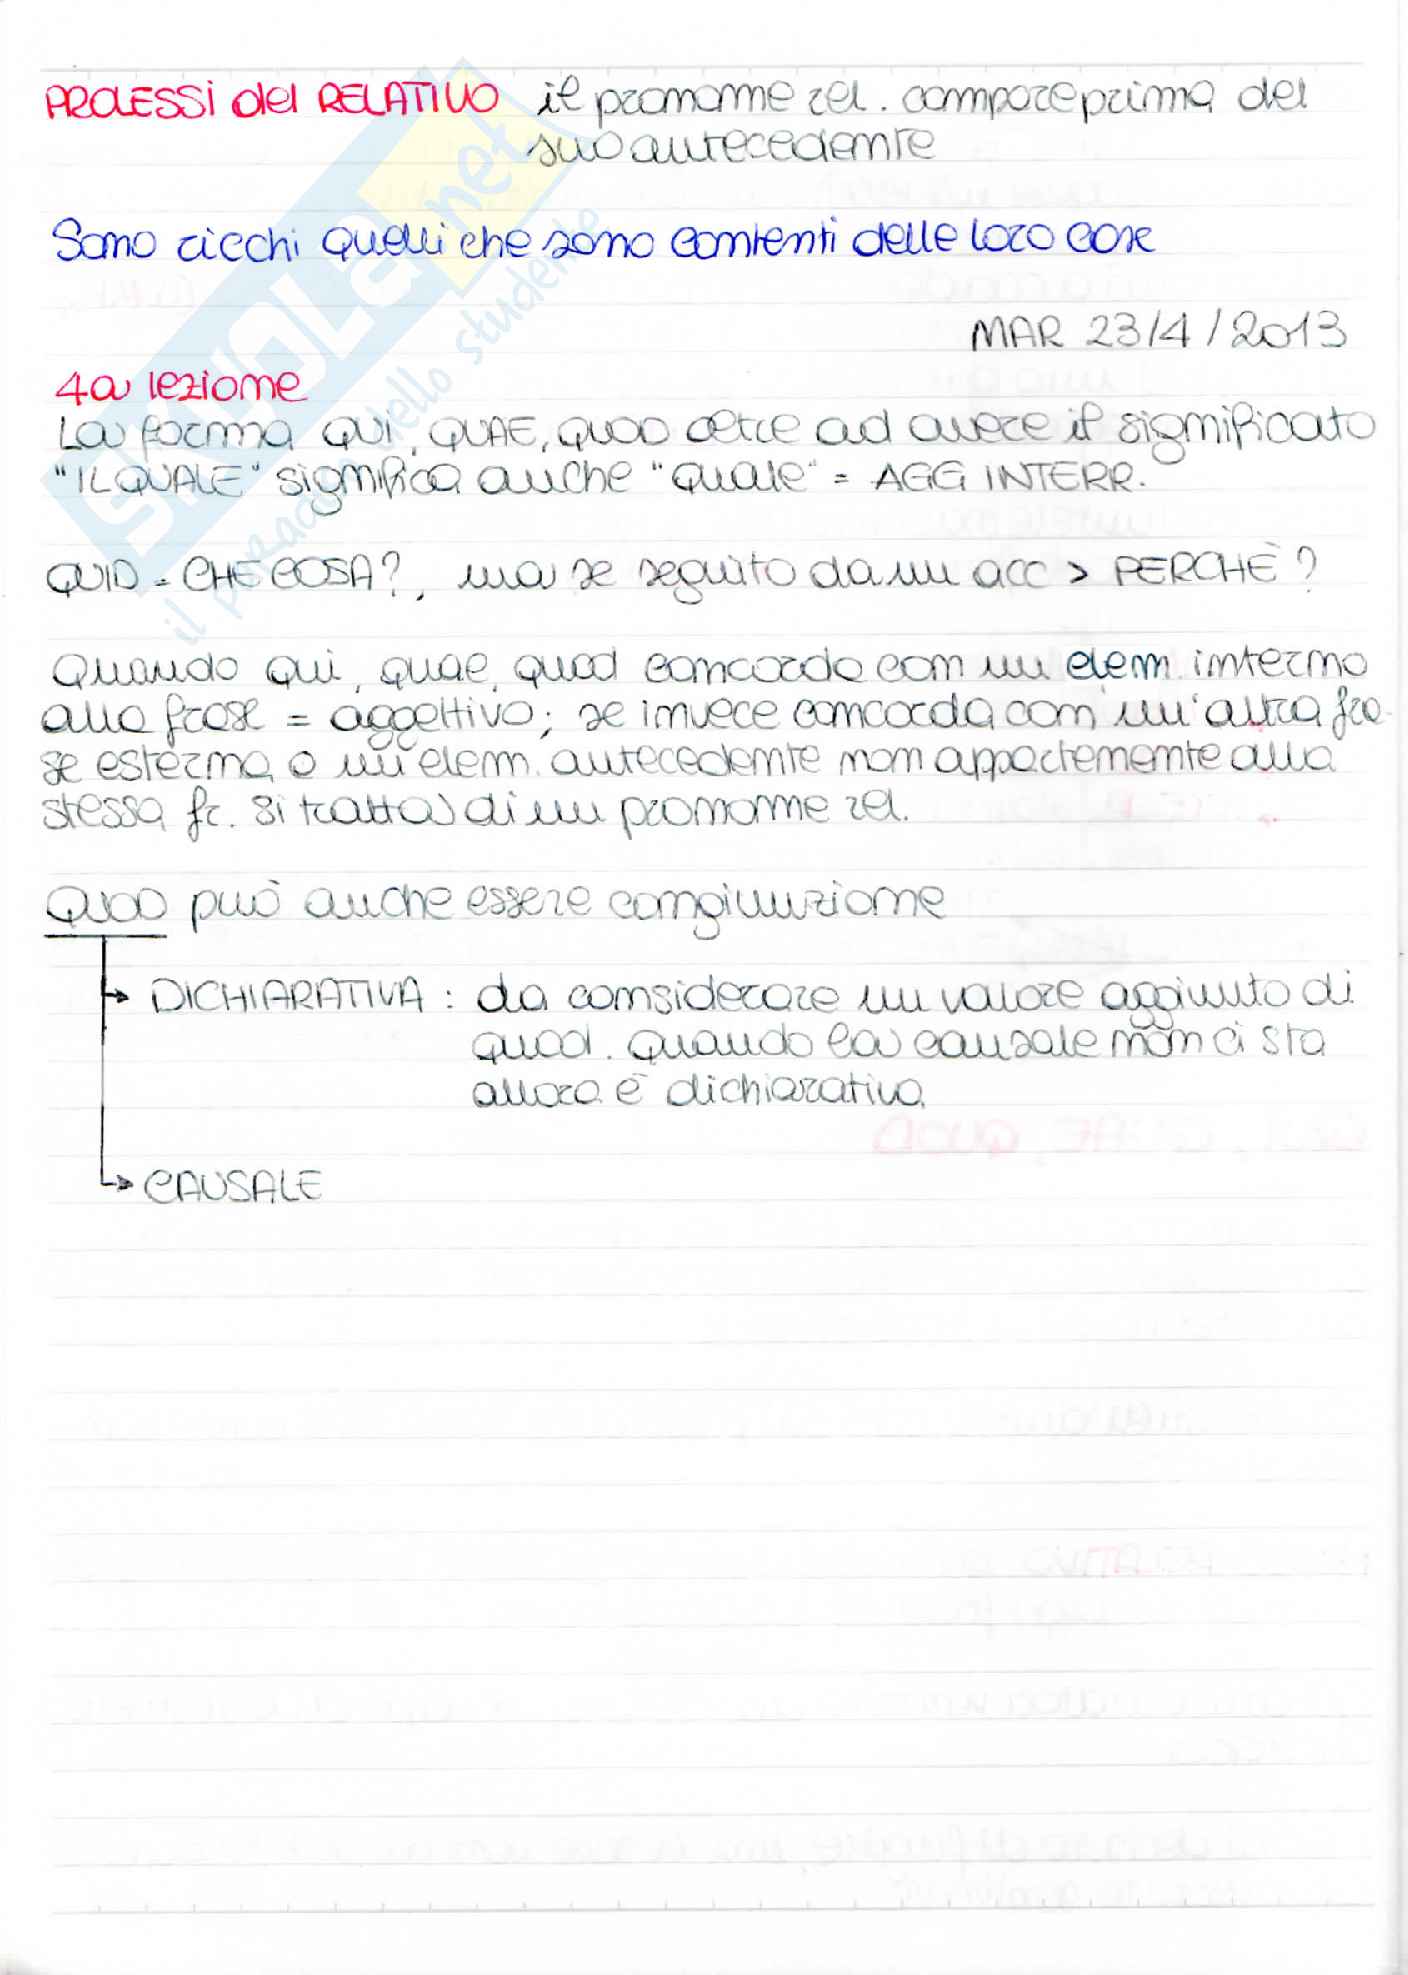 PROLESSI del RELATIVO il pronome rel. compare prima del
suo antecedente
Sono ricchi quelli che sono contenti delle loro cose
MAR 23/4/2013
4a lezione
La forma QUI, QUAE, QUOD oltre ad avere il significato
"IL QUALE" significa anche "quale" = AGG INTERR.
QUID = CHE COSA?, ma se seguito da un acc > PERCHÈ?
Quando qui, quae, quod concorda con un elem. interno
alla frase = aggettivo; se invece concorda con un'altra fra-
se esterna o un elem. antecedente non appartenente alla
stessa fr. si tratta di un pronome rel.
QUOD può anche essere congiunzione
→ DICHIARATIVA: da considerare un valore aggiunto di
quod. quando la causale non ci sta
allora è dichiarativa
→ CAUSALE
SKUOLA.net
il paradiso dello studente